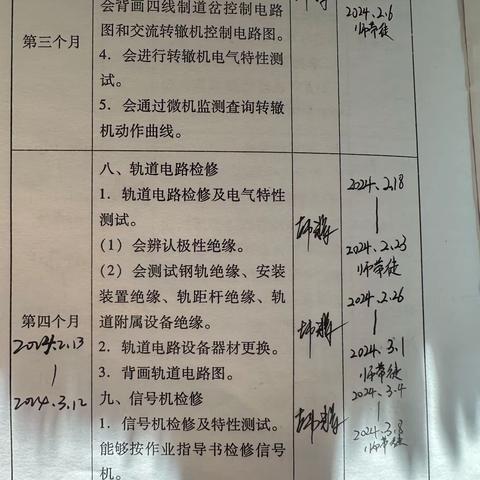 会背画四线制道岔控制电路
图和交流转辙机控制电路图。
4. 会进行转辙机电气特性测
试。
5. 会通过微机监测查询转辙
机动作曲线。
第三个月
2024.2.6
师带徒
八、轨道电路检修
1. 轨道电路检修及电气特性
测试。
(1) 会辨认极性绝缘。
(2) 会测试钢轨绝缘、安装
装置绝缘、轨距杆绝缘、轨
道附属设备绝缘。
2. 轨道电路设备器材更换。
3. 背画轨道电路图。
九、信号机检修
1. 信号机检修及特性测试。
能够按作业指导书检修信号
机。
第四个月
2024.2.13
|
2024.3.12
2024.2.18
|
2024.2.23
师带徒
2024.2.26
|
2024.3.1
师带徒
2024.3.4
|
2024.3.8
师带徒